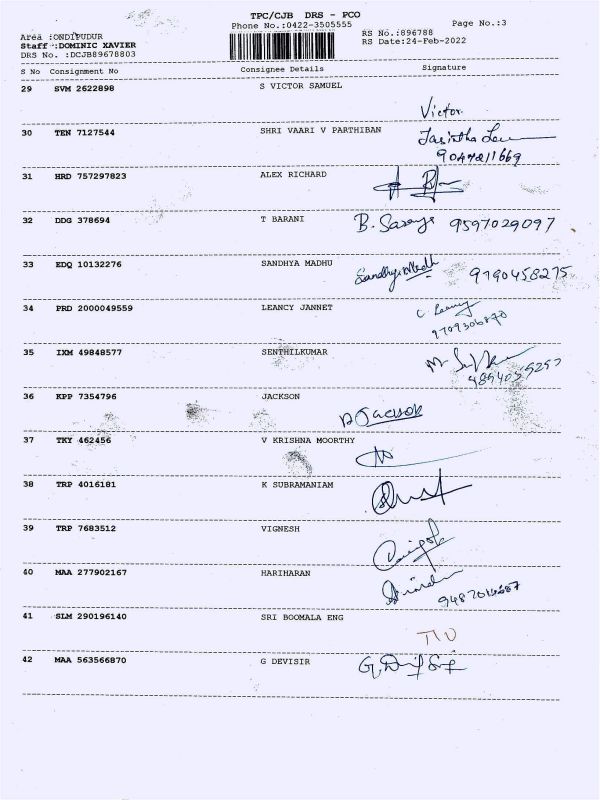 TPC/CJB DRS - PCO
Phone No.:0422-3505555
Page No.:3
Area :ONDIPUDUR
Staff :DOMINIC XAVIER
DRS No. :DCJB89678803
RS No.:896788
RS Date:24-Feb-2022
S No Consignment No Consignee Details Signature
29 SVM 2622898 S VICTOR SAMUEL
Victor
30 TEN 7127544 SHRI VAARI V PARTHIBAN
31 HRD 757297823 ALEX RICHARD
32 DDG 378694 T BARANI B. 9597029097
33 EDQ 10132276 SANDHYA MADHU
9790458275
34 PRD 2000049559 LEANCY JANNET C Leancy
35 IXM 49848577 SENTHILKUMAR
36 KPP 7354796 JACKSON
Jackson
37 TKY 462456 V KRISHNA MOORTHY
38 TRP 4016181 K SUBRAMANIAM
39 TRP 7683512 VIGNESH
40 MAA 277902167 HARIHARAN
41 SLM 290196140 SRI BOOMALA ENG
42 MAA 563566870 G DEVISIR